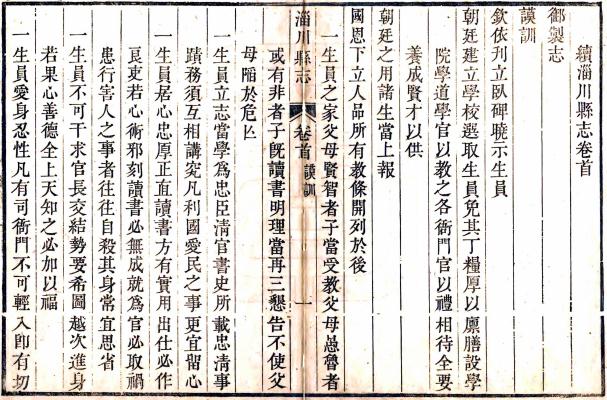 續淄川縣志卷首
御製志
謨訓
欽依刋立臥碑曉示生員
朝廷建立學校選取生員免其丁糧厚以廩膳設學
院學道學官以教之各衙門官以禮相待全要
養成賢才以供
朝廷之用諸生當上報
國恩下立人品所有教條開列於後
一生員之家父母賢智者子當受教父母愚魯者
淄川縣志
卷首
謨訓
一
或有非者子旣讀書明理當再三懇告不使父
母陷於危亾
一生員立志當學爲忠臣清官書史所載忠清事
蹟務須互相講究凡利國愛民之事更宜留心
一生員居心忠厚正直讀書方有實用出仕必作
良吏若心術邪刻讀書必無成就爲官必取禍
患行害人之事者往往自殺其身常宜思省
一生員不可干求官長交結勢要希圖越次進身
若果心善德全上天知之必加以福
一生員愛身忍性凡有司衙門不可輕入卽有切